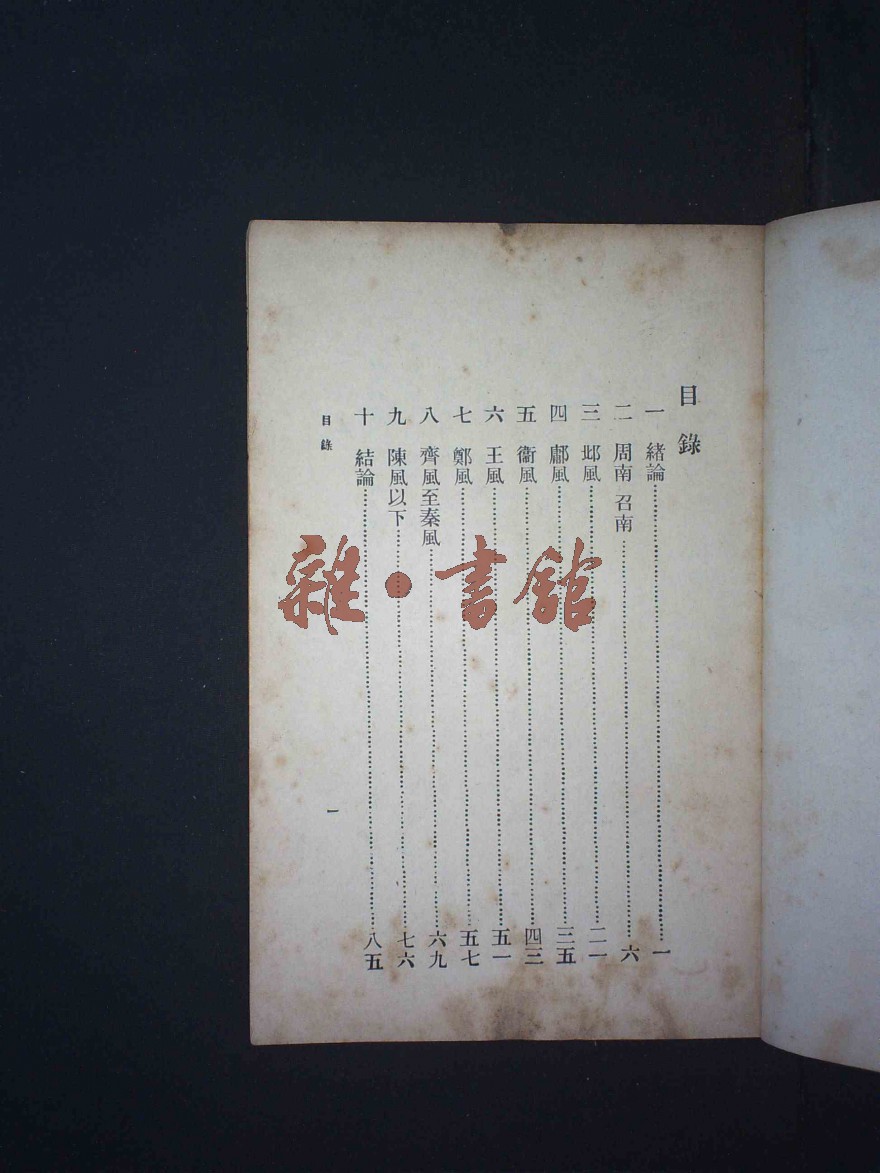 目錄
一 緒論……一
二 周南 召南……六
三 邶風……二一
四 鄘風……三五
五 衞風……四三
六 王風……五一
七 鄭風……五七
八 齊風至秦風……六九
九 陳風以下……七六
十 結論……八五
目錄
一
雜·書館